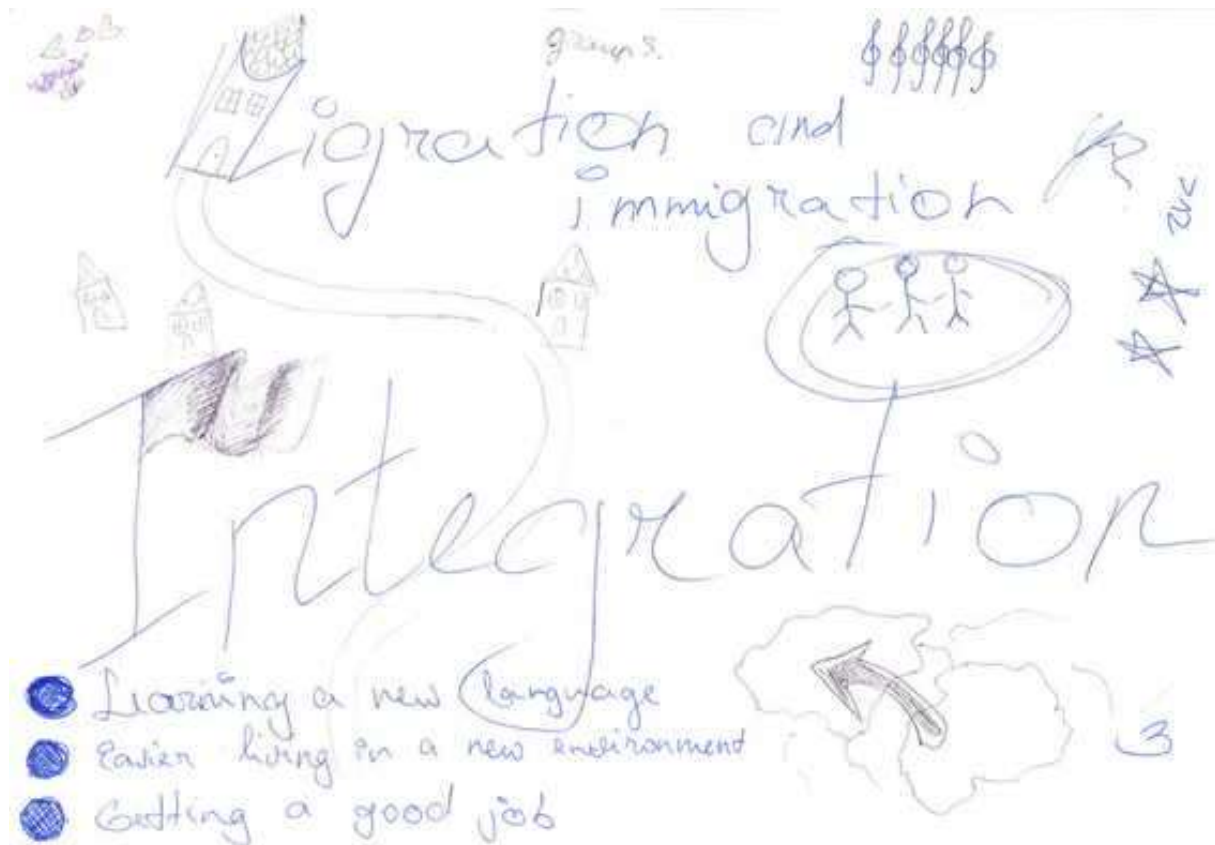 group 3.
Migration and
immigration
Integration
Learning a new language
Easier living in a new environment
Getting a good job
3